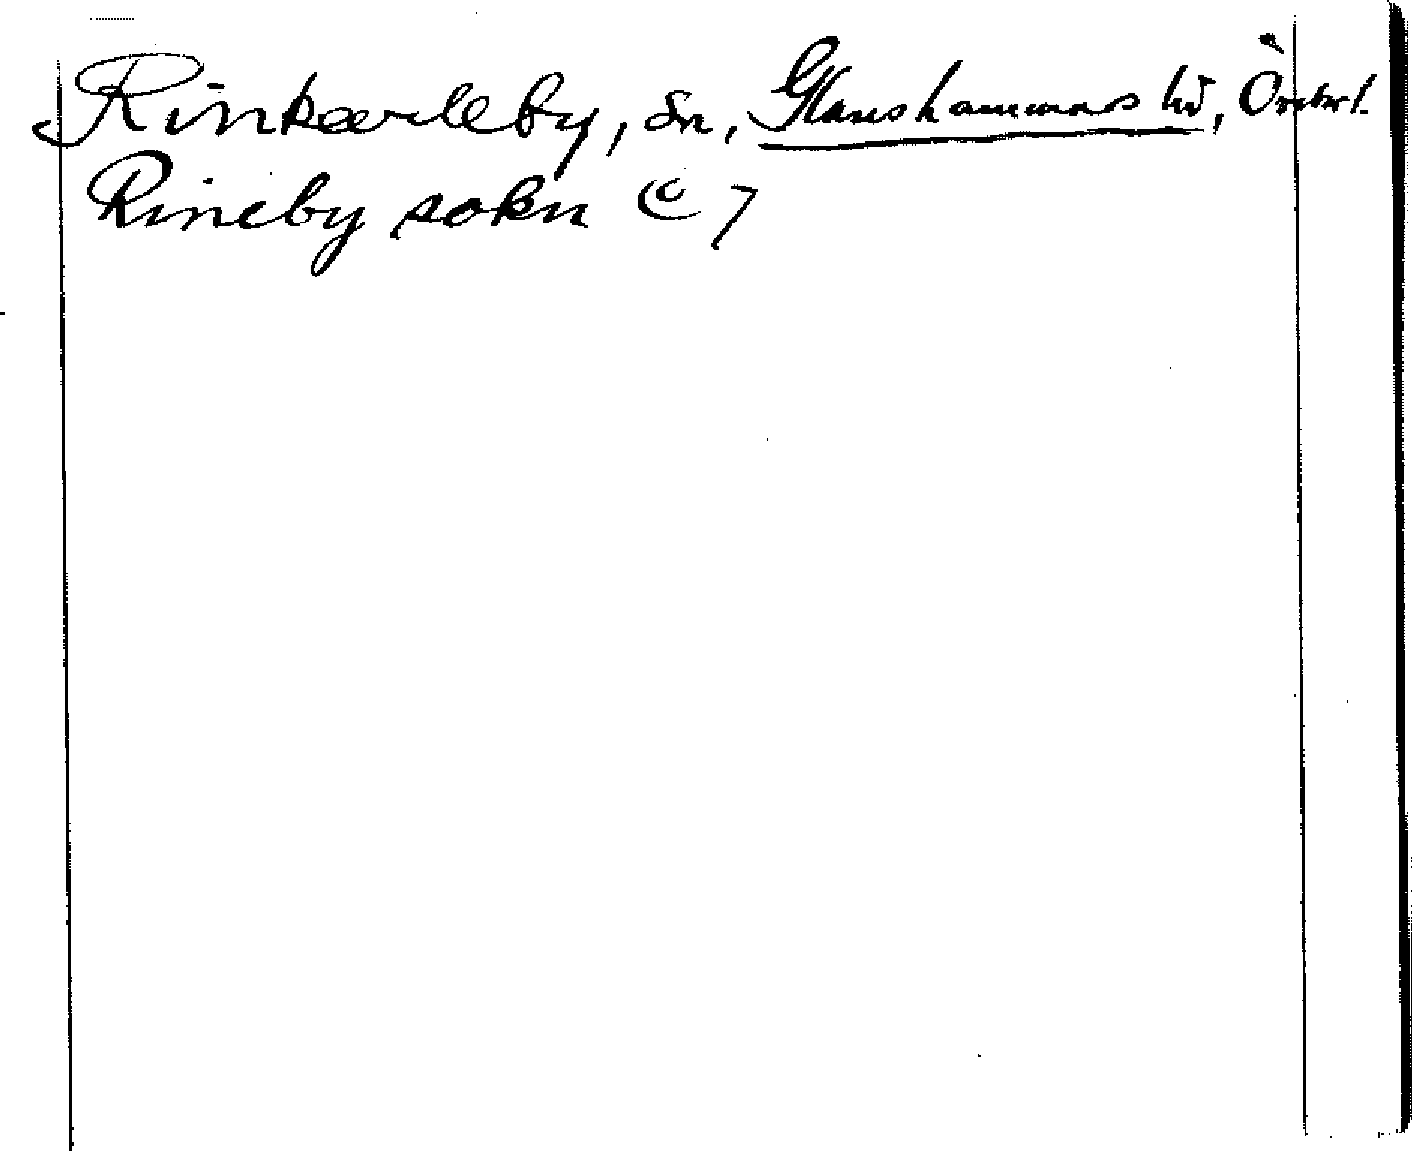 Rinkærleby, sn, Glanshammars hd, Örebr l.
Rineby sokn C 7